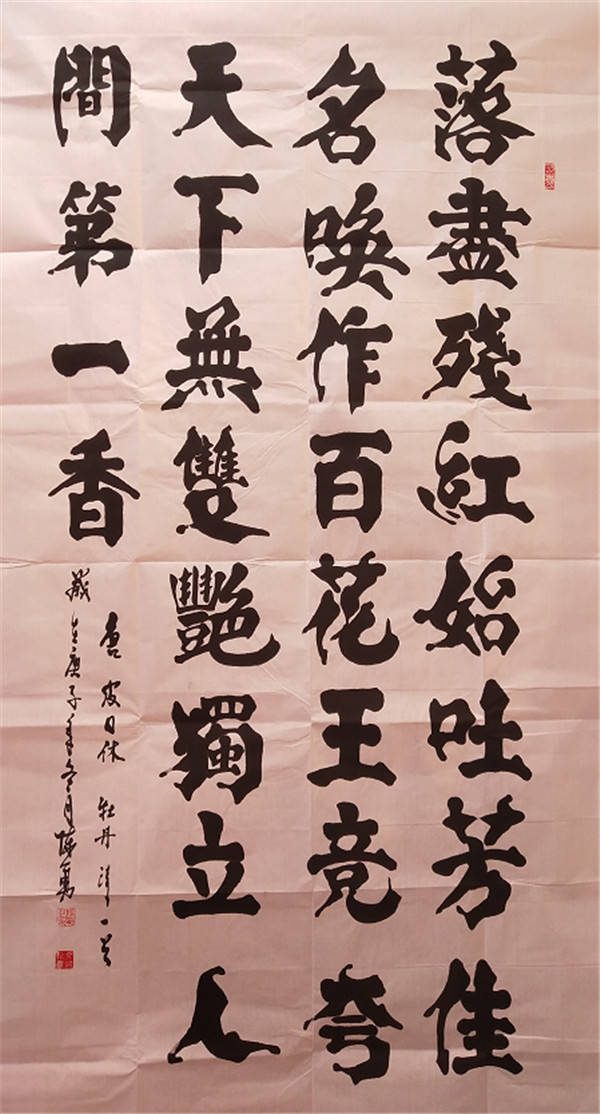 落盡殘紅始吐芳佳
名喚作百花王竞夸
天下無雙艷獨立人
間第一香
唐皮日休 牡丹诗一首
歲在庚子年冬月陈勇